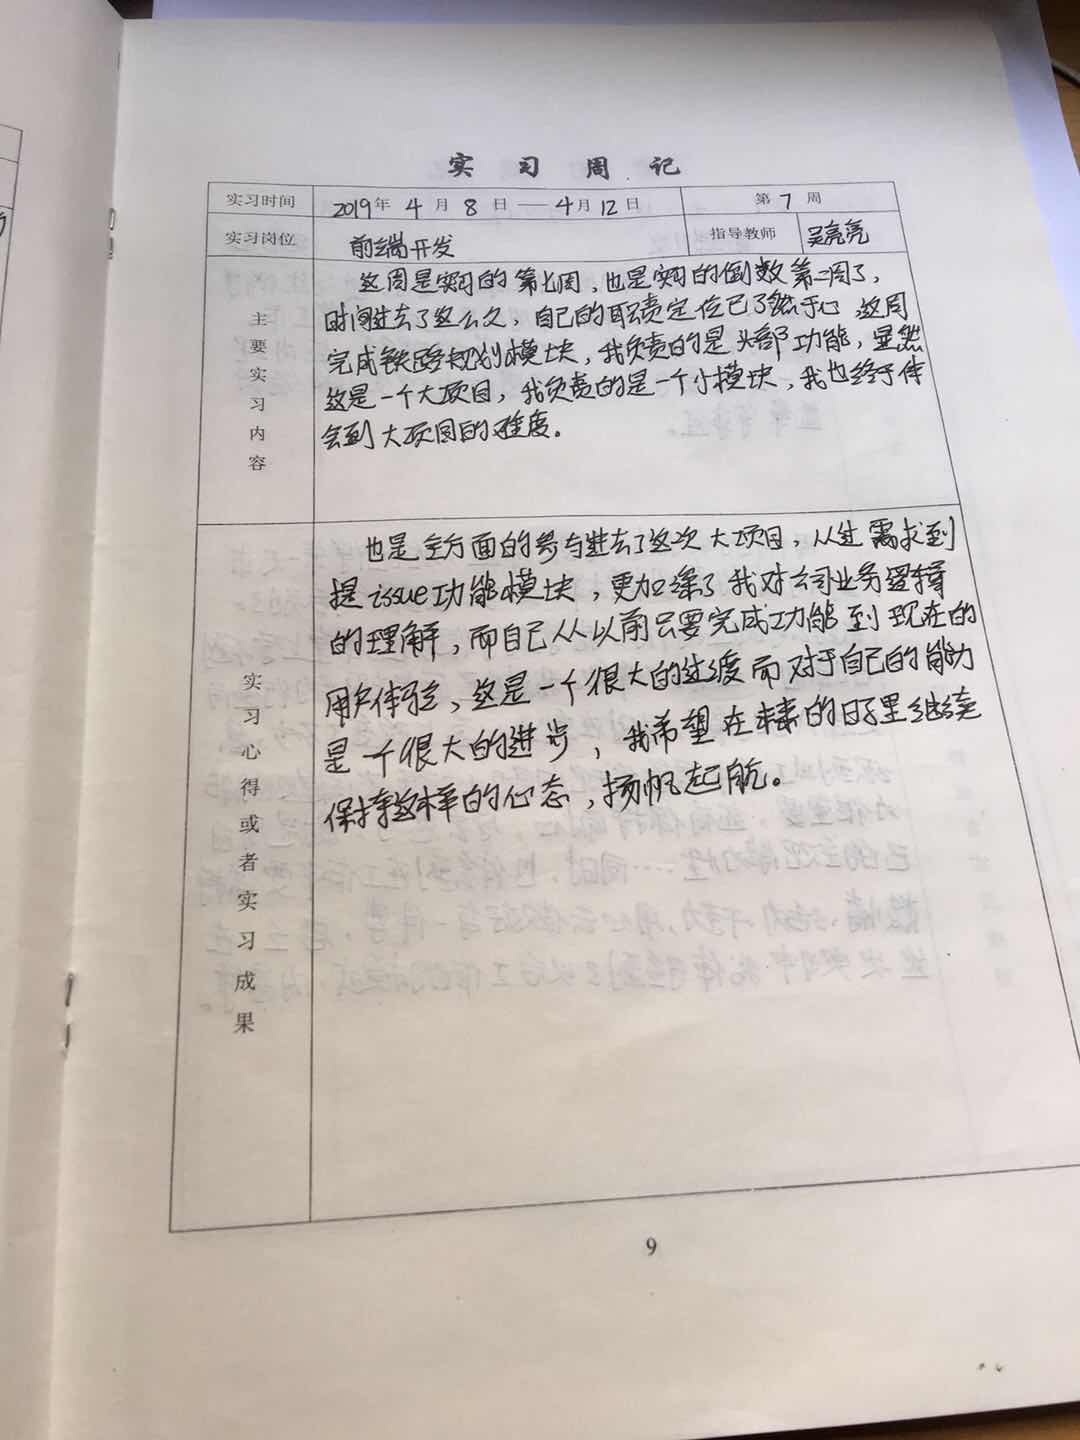 实习周记
实习时间 2019年 4月 8日 — 4月12日 第 7 周
实习岗位 前端开发 指导教师 吴亮亮
主要实习内容
这周是实习的第七周，也是实习的倒数第二周了，
时间过去了这么久，自己的职责定位已了然于心，这周
完成铁路规划模块，我负责的是头部功能，显然
这是一个大项目，我负责的是一个小模块，我也终于体
会到大项目的难度。
实习心得或者实习成果
也是全方面的参与进去了这次大项目，从过需求到
提issue功能模块，更加深了我对公司业务逻辑
的理解，而自己从以前只要完成功能到现在的
用户体验，这是一个很大的过渡而对于自己的能力
是一个很大的进步，我希望在未来的日子里继续
保持这样的心态，扬帆起航。
9